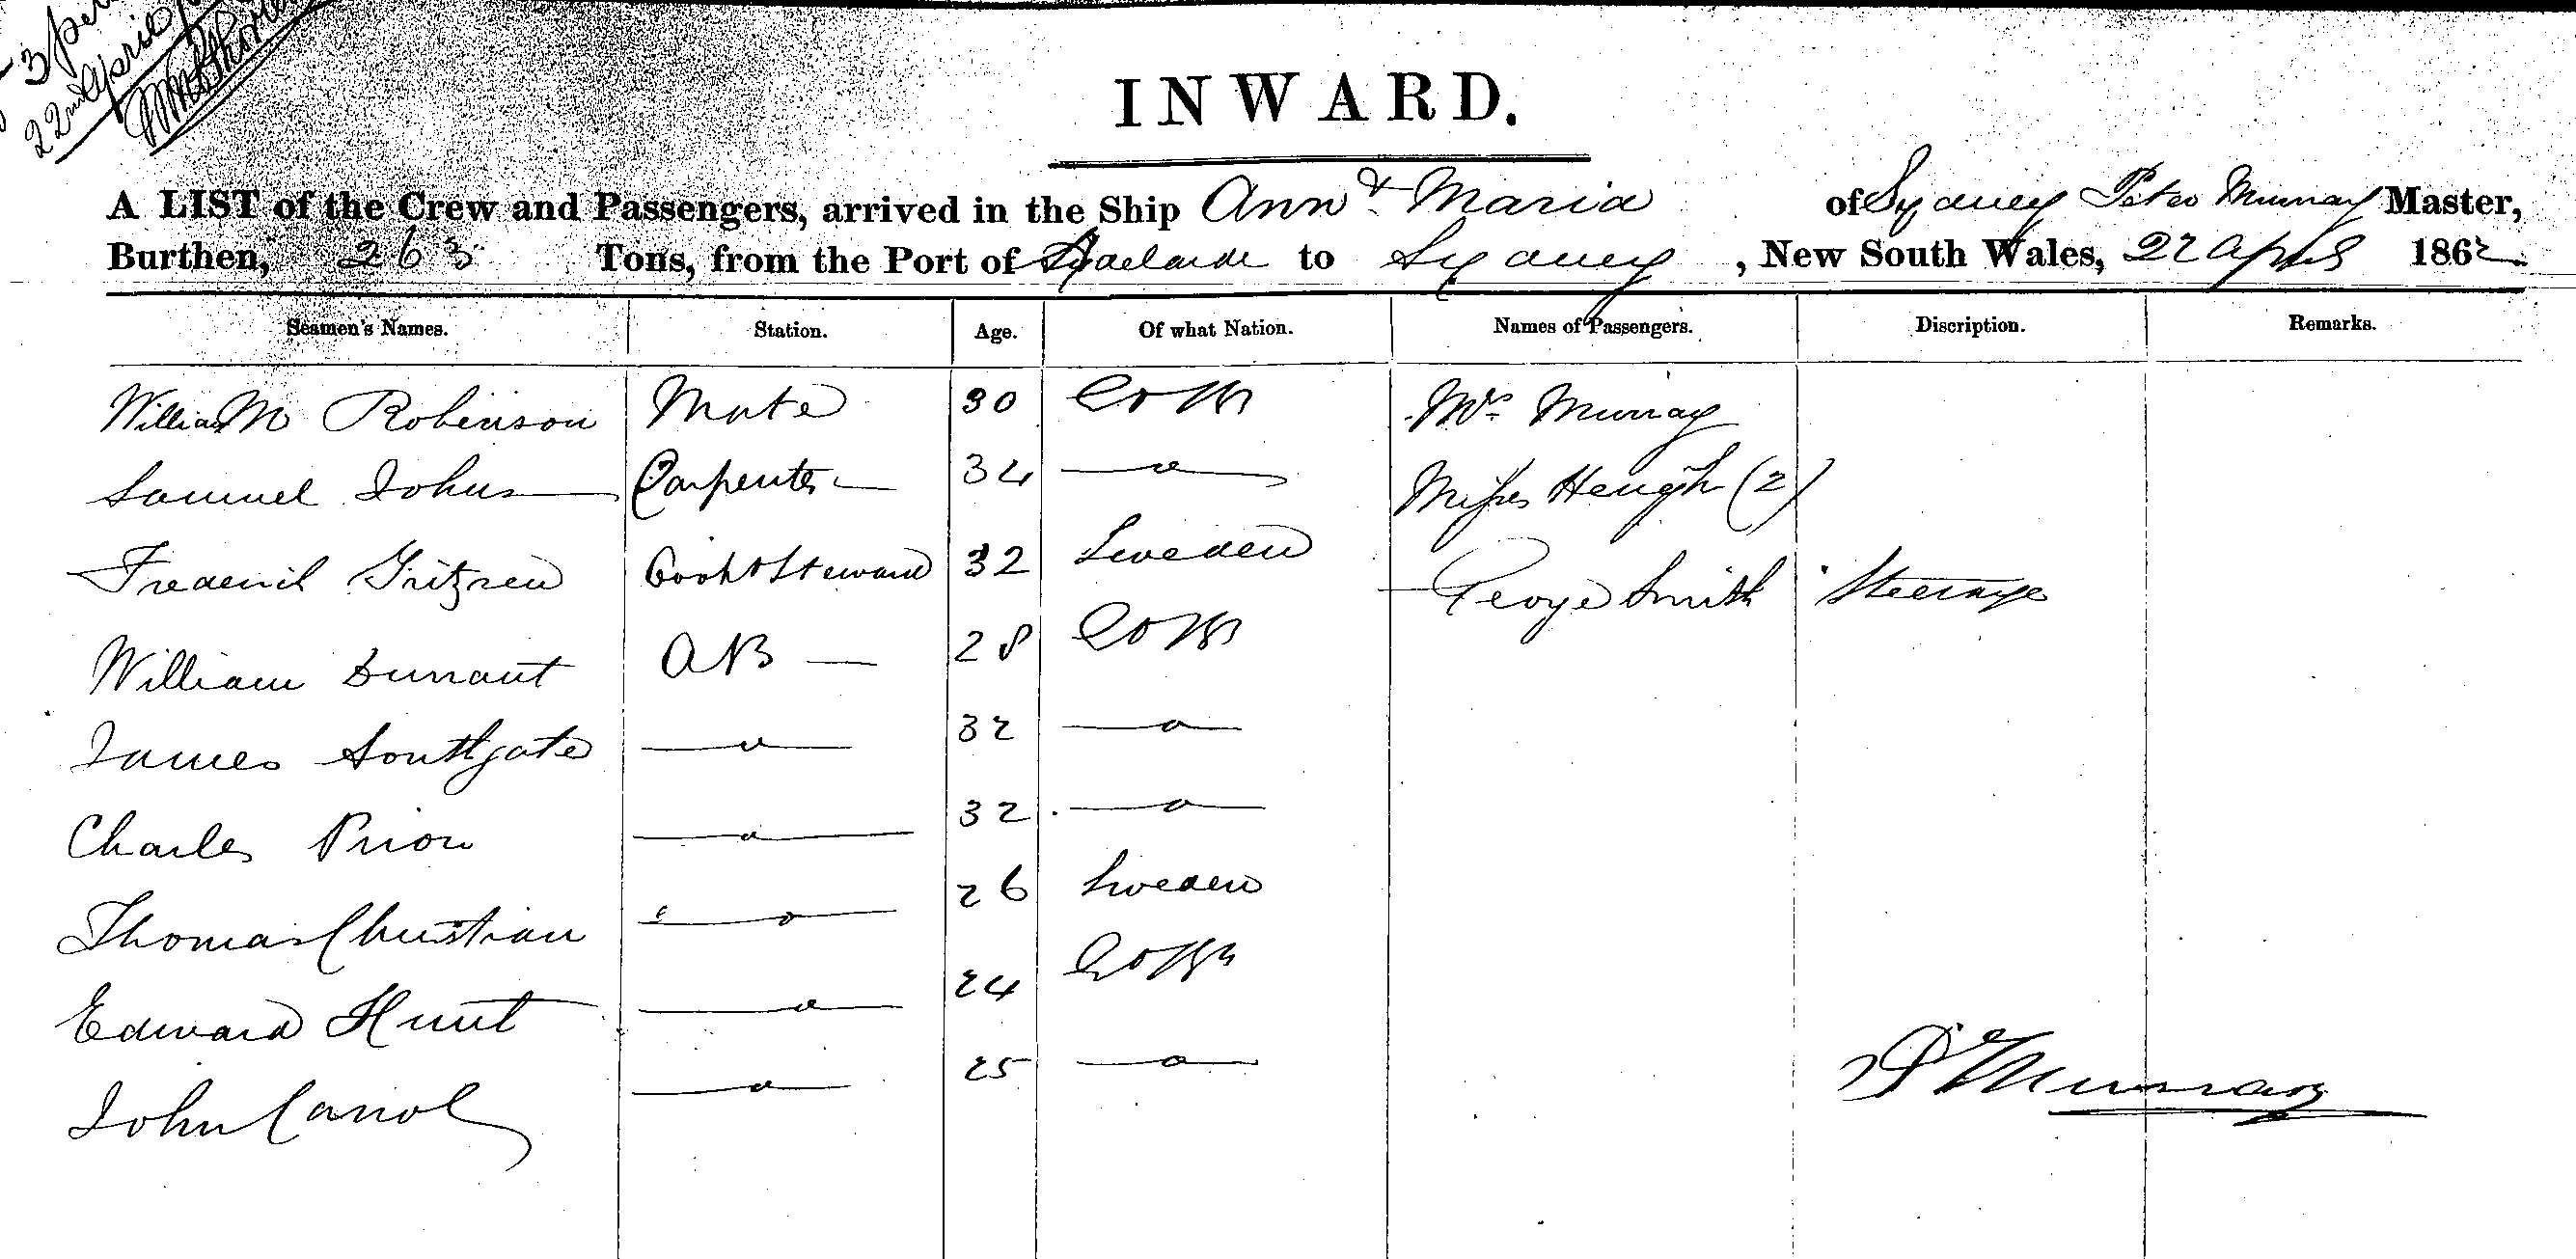 22nd April
INWARD.
A LIST of the Crew and Passengers, arrived in the Ship Ann & Maria of Sydney Peter Murray Master,
Burthen, 263 Tons, from the Port of Adelaide to Sydney, New South Wales, 22 April 1862.
Seamen's Names. Station. Age. Of what Nation. Names of Passengers. Discription. Remarks.
William Robinson Mate 30 Mrs. Murray
Samuel Johns Carpenter 34 — " — Misses Heugh (2)
Frederick Fritzen Cook & Steward 32 Sweden George Smith Steerage
William Durrant AB — 28
James Southgate — " — 32 — " —
Charles Prior — " — 32 — " —
Thomas Christian — " — 26 Sweden
Edward Hunt — " — 24
John Carrol — " — 25 — " —
P Murray